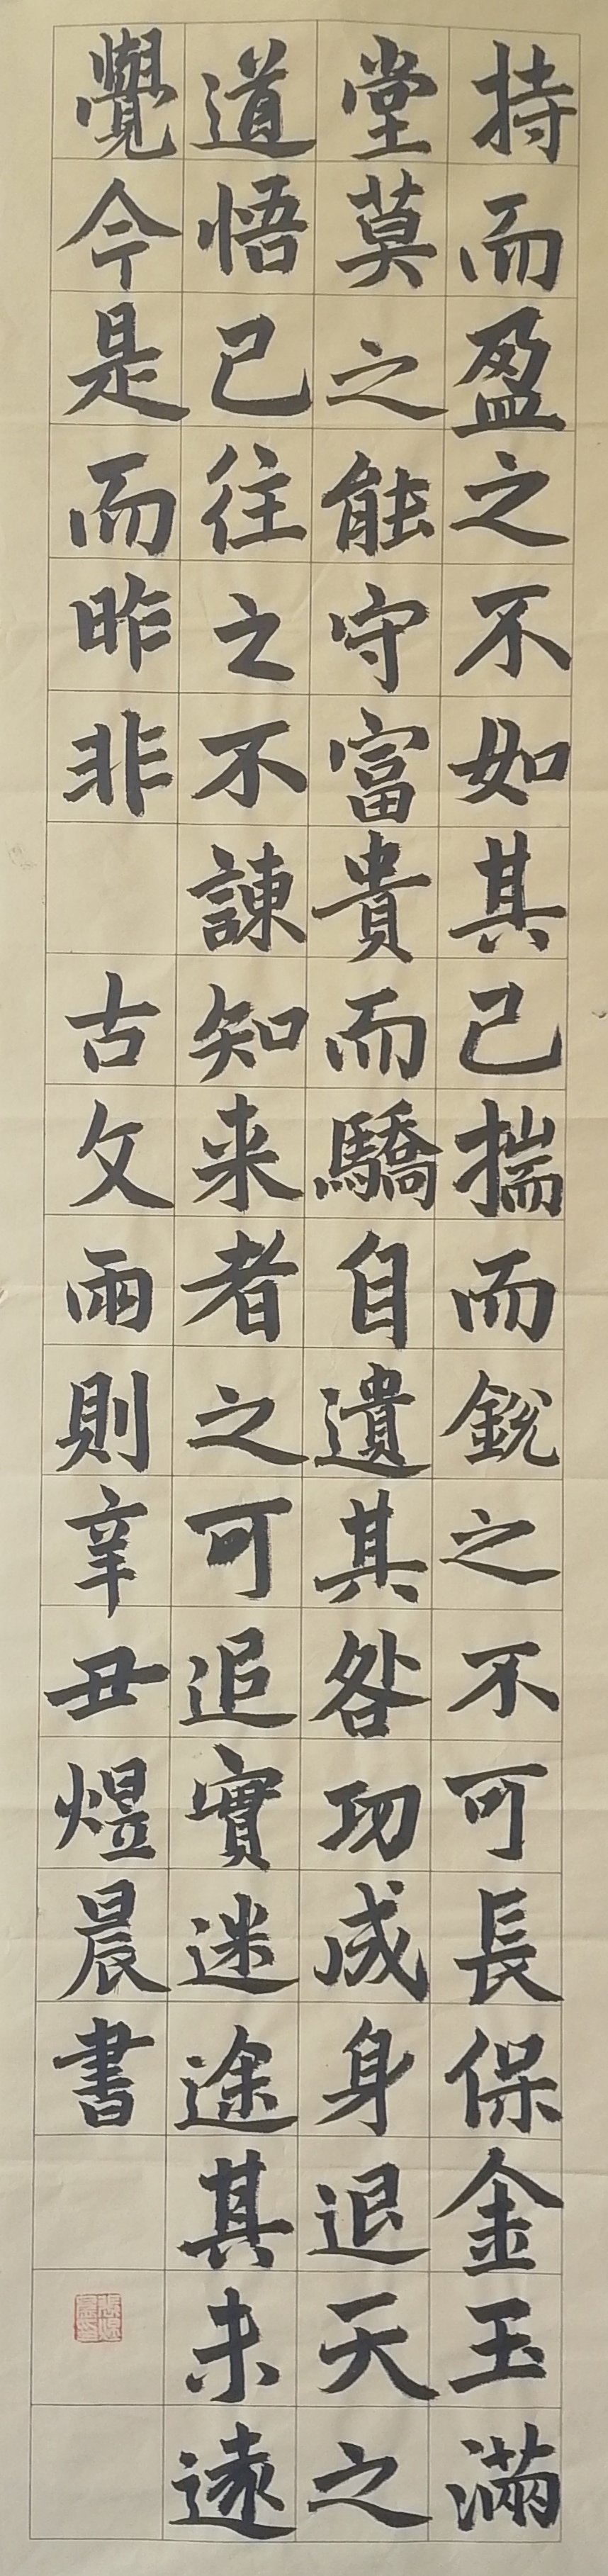 持而盈之不如其己揣而銳之不可長保金玉滿
堂莫之能守富貴而驕自遺其咎功成身退天之
道悟已往之不諫知来者之可追實迷途其未遠
覺今是而昨非 古文兩則辛丑煜晨書